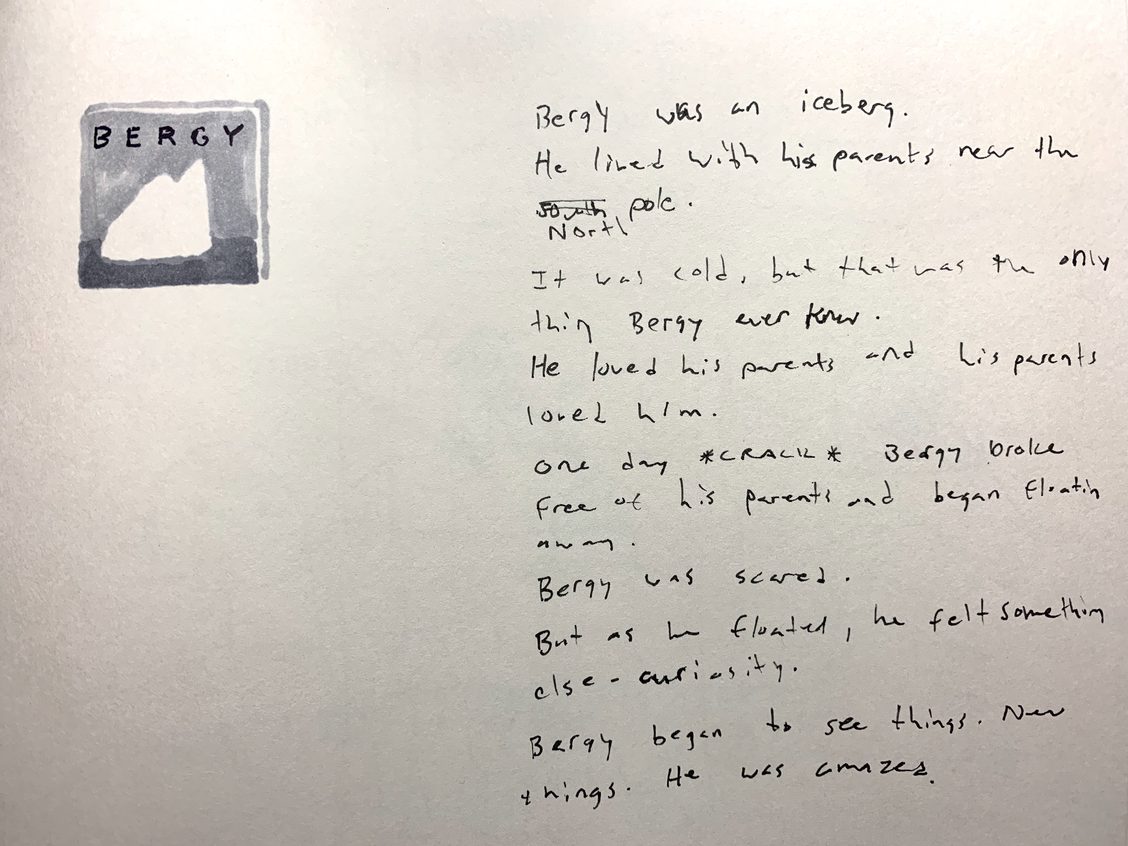 BERGY
Bergy was an iceberg.
He lived with his parents near the
south pole.
North
It was cold, but that was the only
thing Bergy ever knew.
He loved his parents and his parents
loved him.
One day *CRACK* Bergy broke
free of his parents and began floating
away.
Bergy was scared.
But as he floated, he felt something
else - curiosity.
Bergy began to see things. New
things. He was amazed.